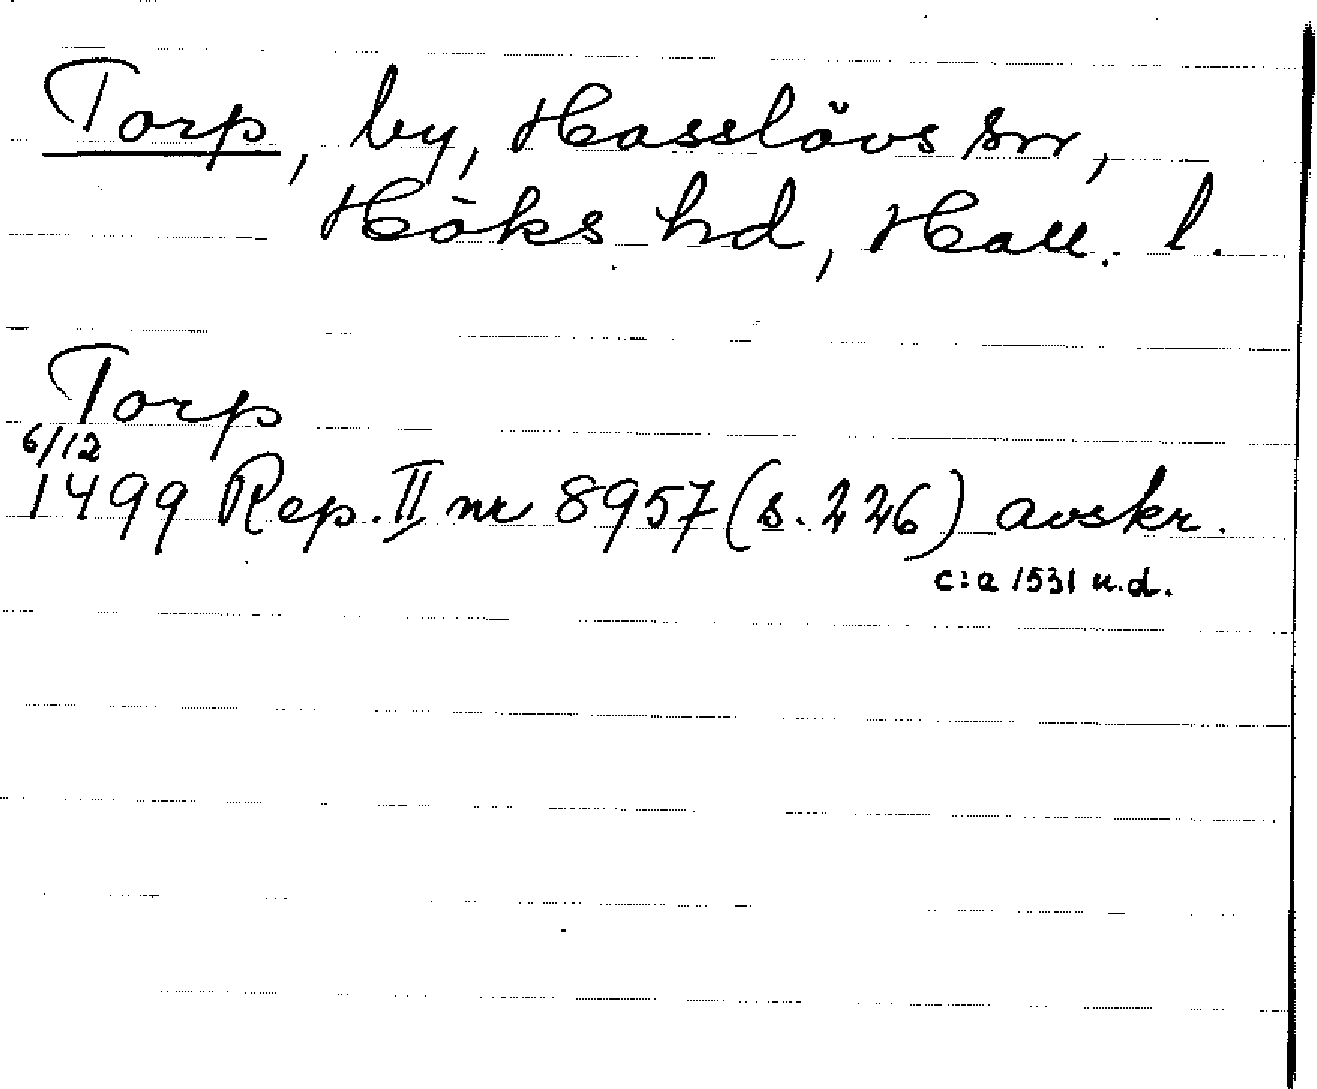 Torp, by, Hasslövs sn,
Höks hd, Hall. l.
Torp
6/12
1499 Rep. II nr 8957 (s. 226) avskr.
c:a 1531 u.d.